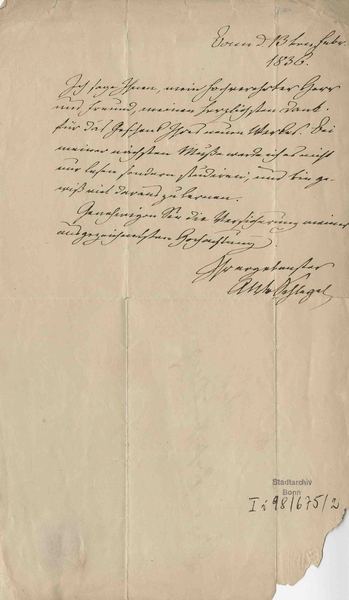 Bonn d. 13ten Febr.
1836.
Ich sage Ihnen, mein hochverehrter Herr
und Freund, meinen herzlichsten Dank
für das Geschenk Ihres neuen Werkes. Bei
meiner nächsten Muße werde ich es nicht
nur lesen sondern studieren, und bin ge-
wiß viel daraus zu lernen.
Genehmigen Sie die Versicherung meiner
ausgezeichnetsten Hochachtung.
Ihr ergebenster
AW v Schlegel
Stadtarchiv
Bonn
I i 98/675/2